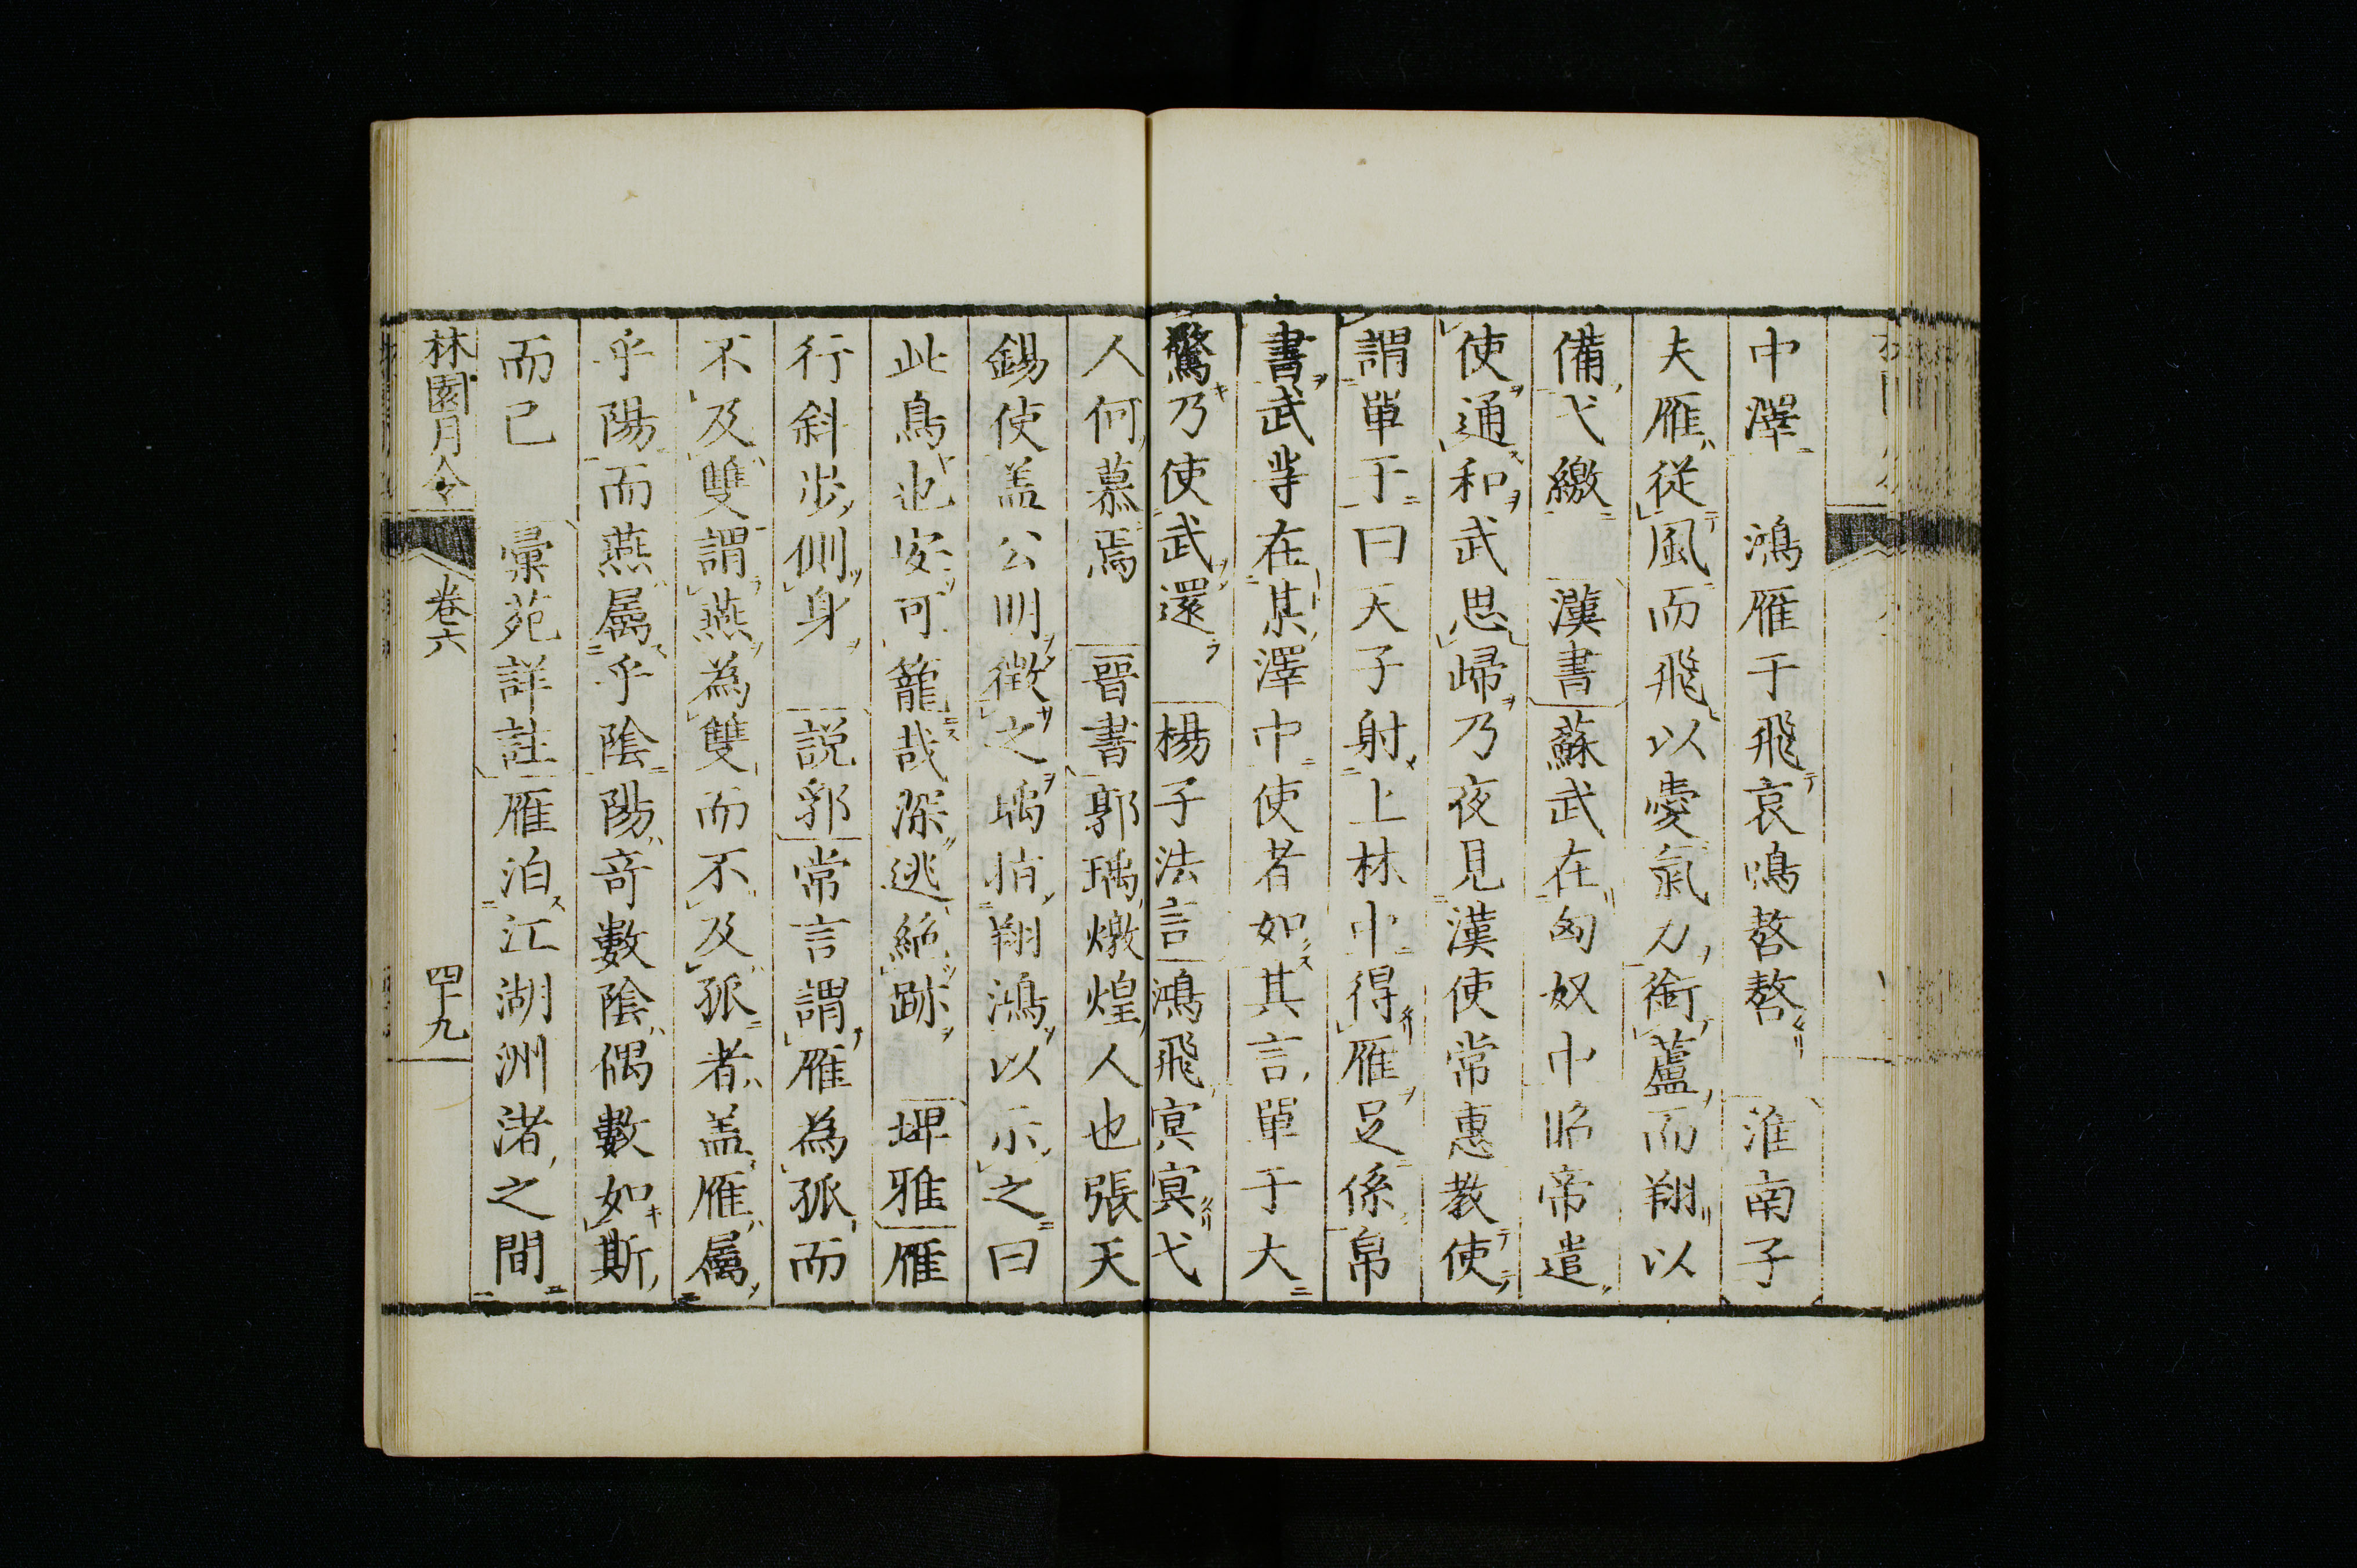 中澤　鴻雁于飛哀鳴嗸嗸　淮南子
夫雁従風而飛以愛氣力銜蘆而翔以
備弋繳　漢書蘇武在匈奴中昭帝遣
使通和武思歸乃夜見漢使常惠教使
謂單于曰天子射上林中得雁足係帛
書武等在某澤中使者如其言單于大
驚乃使武還　楊子法言鴻飛冥冥弋
人何慕焉　晉書郭瑀燉煌人也張天
錫使盖公明徵之瑀指翔鴻以示之曰
此鳥也安可籠哉深逃絶跡　埤雅雁
行斜步側身　説郛常言謂雁為孤而
不及雙謂燕為雙而不及孤者盖雁屬
乎陽而燕屬乎陰陽竒數陰偶數如斯
而已　彙苑詳註雁泊江湖洲渚之間
林園月令　卷六　四十九